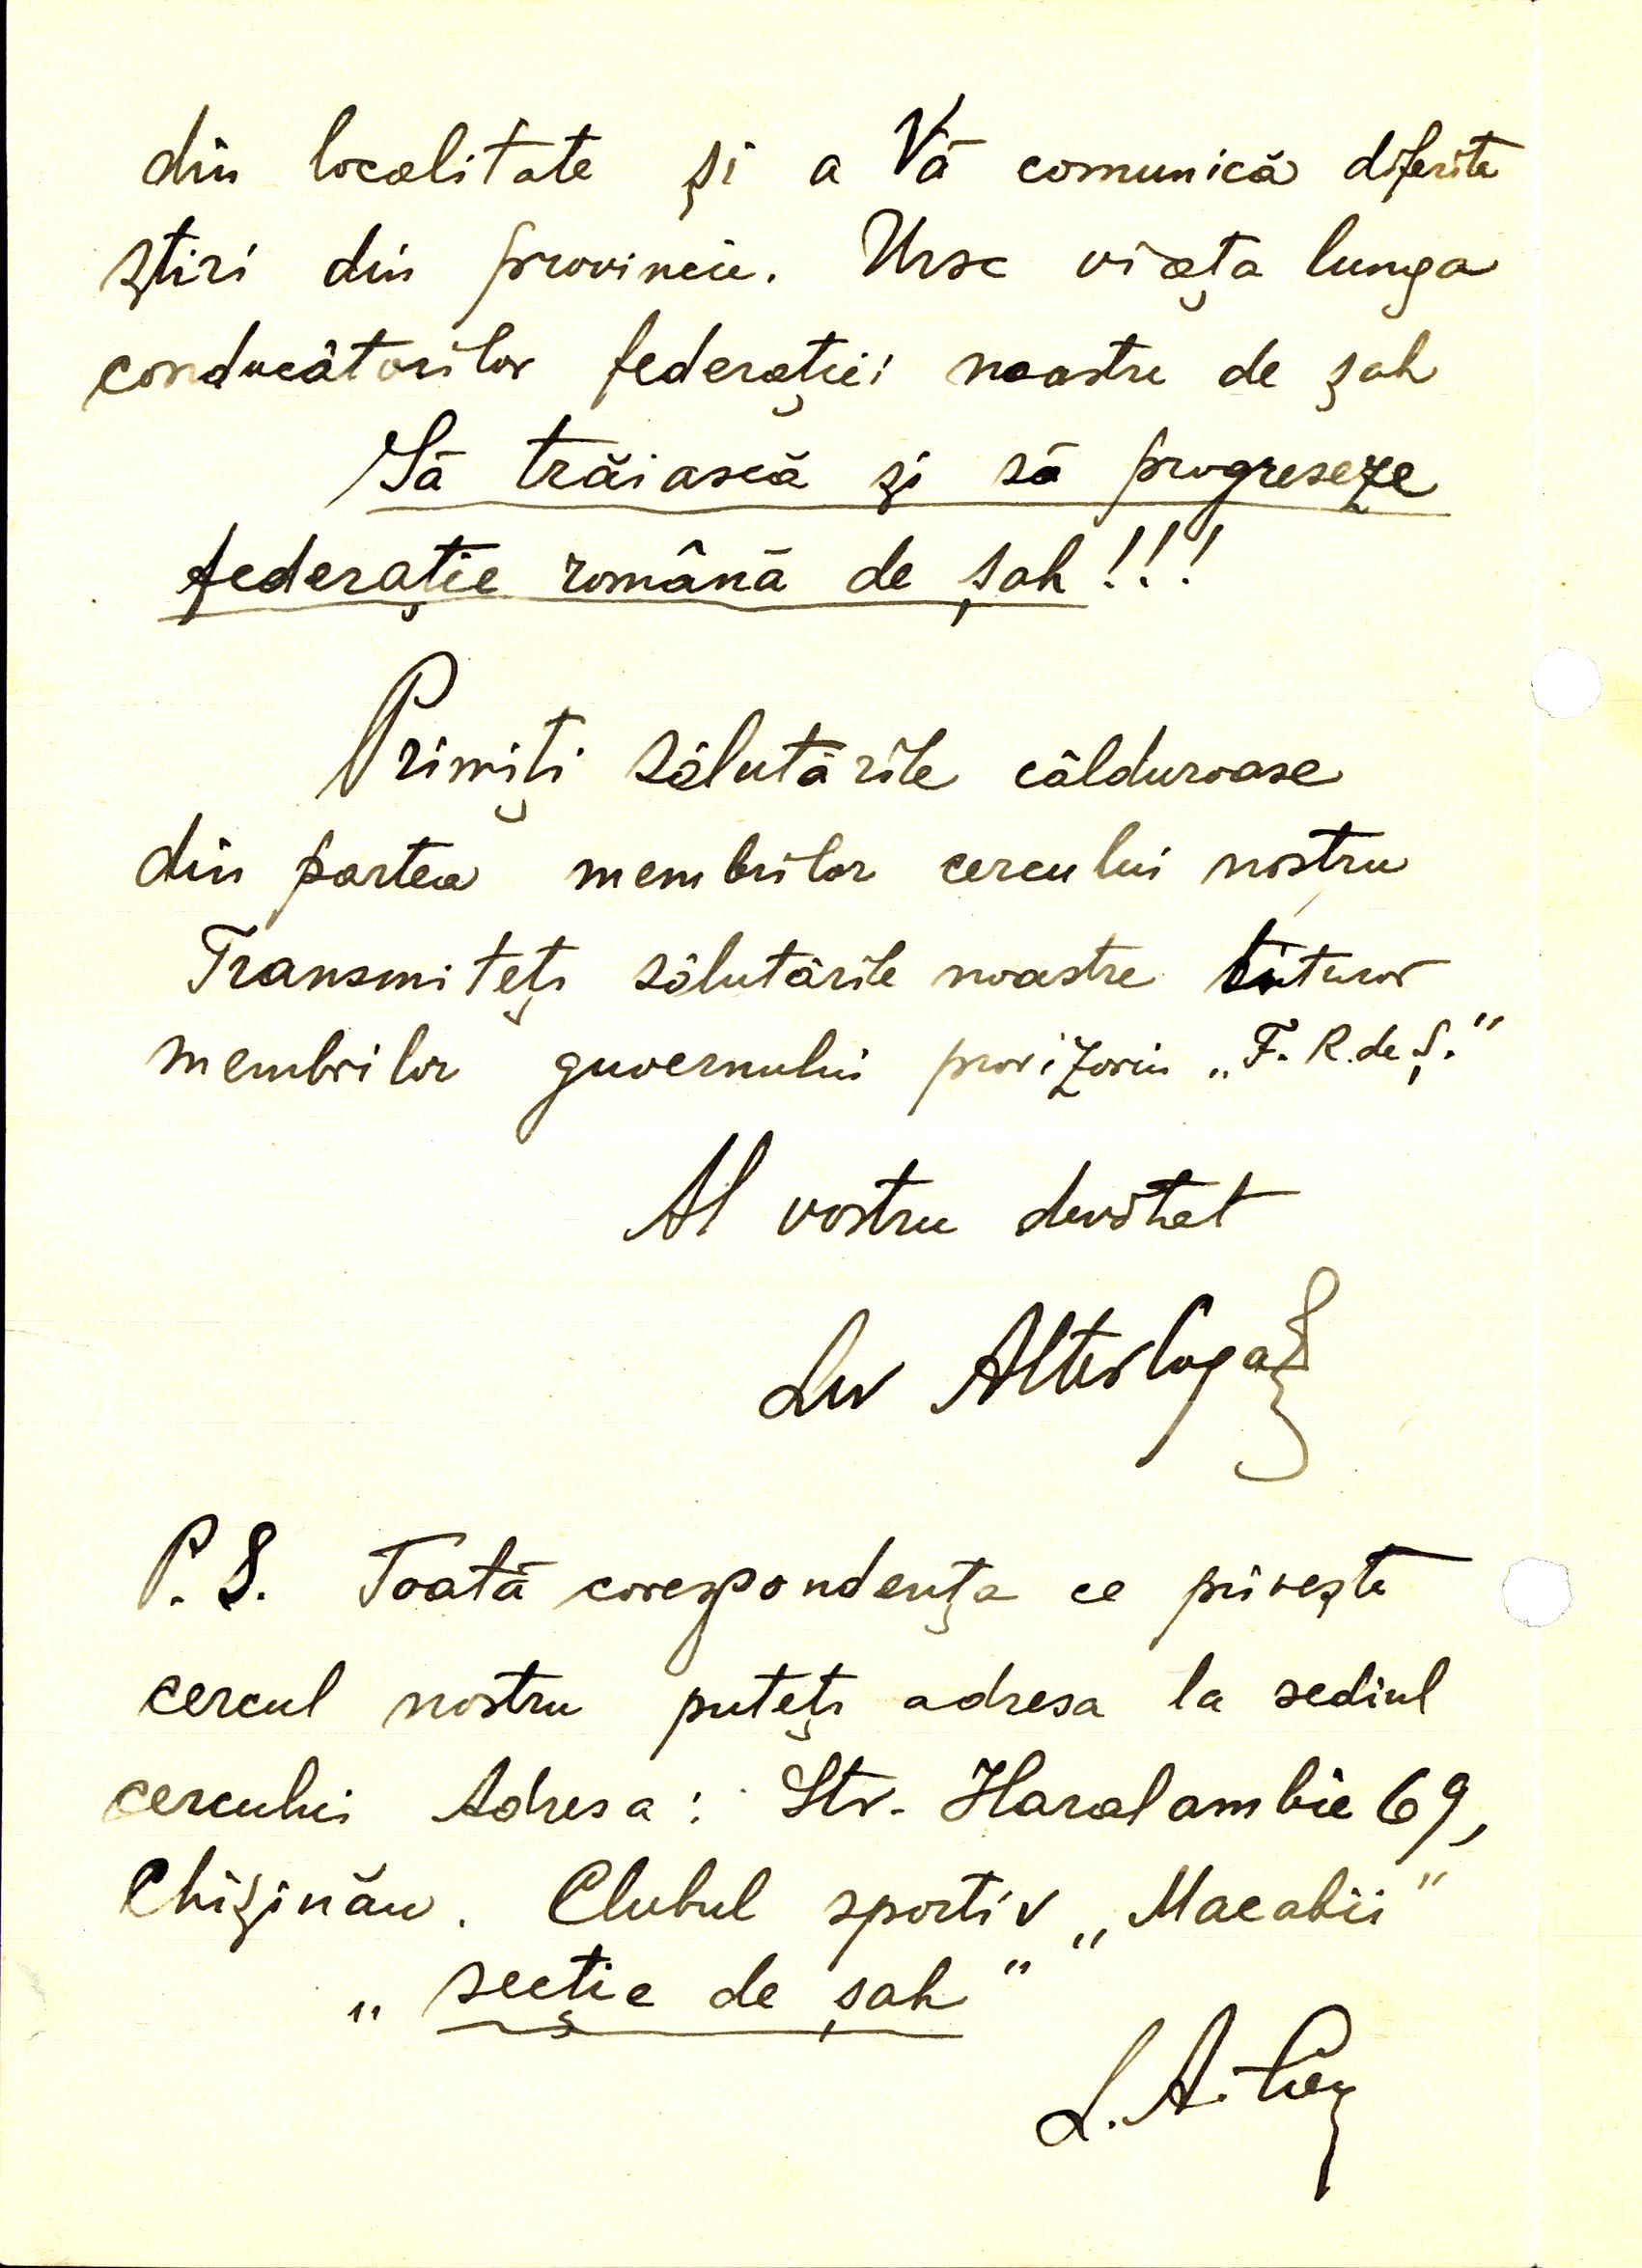 din localitate și a Vă comunică diferite
știri din provincie. Ursc viața lunga
conducătorilor federației noastre de șah
Să trăiască și să progreseze
federație română de șah!!!
Primiți sălutările călduroase
din partea membrilor cercului nostru
Transmiteți sălutările noastre tuturor
membrilor guvernului provizoriu „F. R. de Ș.“
Al vostru devotat
Lev Alter
P. S. Toată corespondența ce privește
cercul nostru puteți adresa la sediul
cercului Adresa: Str. Haralambie 69,
Chișinău. Clubul sportiv „Macabii“
„secție de șah“
L. A.